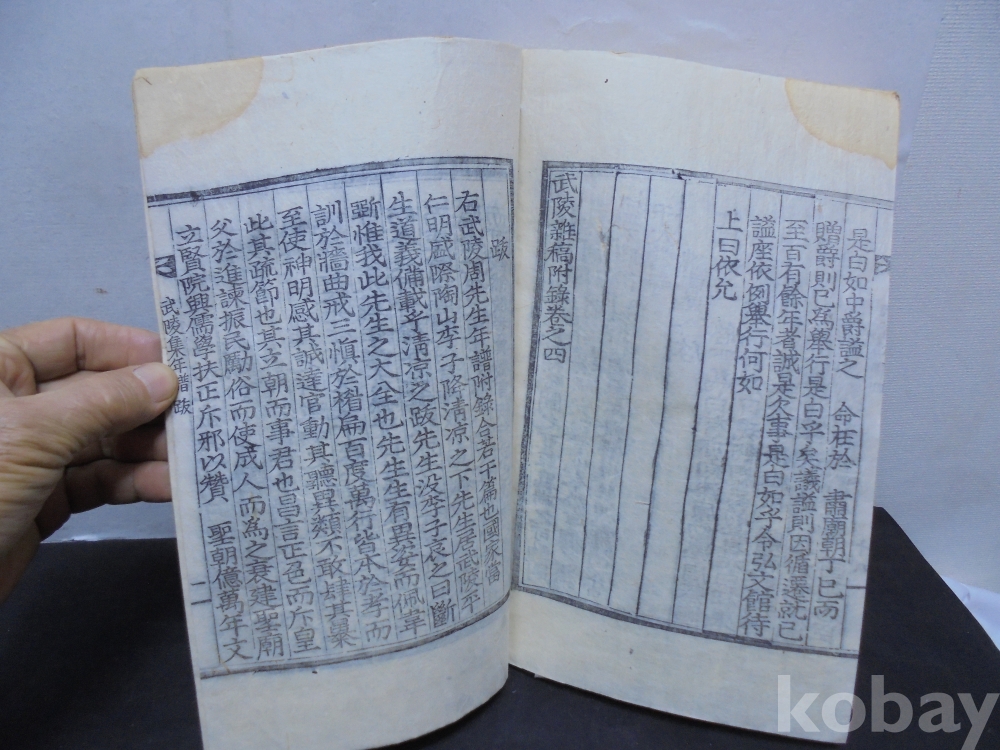 是白如中爵諡之 命在於 肅廟朝丁巳而
贈爵則已爲擧行是白乎矣議諡則因循遷就已
至百有餘年者誠是欠事是白如乎令弘文館待
諡座依例擧行何如
上曰依允
武陵雜稿附錄卷之四
跋
右武陵周先生年譜附錄合若干篇也國家當
仁明盛際陶山李子降淸凉之下先生居武陵平
生道義備載乎淸凉之跋先生沒李子哀之曰斷
斷惟我此先生之大全也先生生有異姿而佩韋
訓於牆曲戒三愼於楮扁百度萬行皆本於孝而
至使神明感其誠達官動其聽異類不敢肆其暴
此其疏節也其立朝而事君也昌言正色而斥皇
父於進諫振民勵俗而使成人而爲之衰建聖廟
立賢院興儒學扶正斥邪以贊 聖朝億萬年文
武陵集年譜 跋
一
kobay